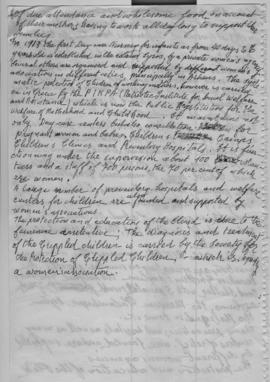 of due attendance and wholesome food, on account
of their mothers having to work all day long to support the
families.
In 1919 the first day nursery for infants as from 40 days to 3
years old is established
several others are organized and supported by different women's
associations in different cities, principally in Athens. The systematic
protection of children by nursery nurses, however, is carried
on in Greece by the P.I.K.P.A. (Patriotic Institute for Social Welfare
and Assistance) which is now the Public Institution for the
welfare of Motherhood and Childhood. It maintains not
only Day-care centers but also consultation for
pregnant women and babies, Children's Camps,
Children's Clinics and Preventory Hospitals. It is functioning
under the supervision of about 100
and a staff of 900 persons, the 90 per cent of which
are women.
A large number of preventory hospitals and welfare
centers for children are also founded and supported by
women's associations.
The protection and education of the blind is due to the
feminine sensitive; The diagnosis and treatment
of the crippled children is carried by the Society for
the Protection of Crippled Children, which is being
a women's association.